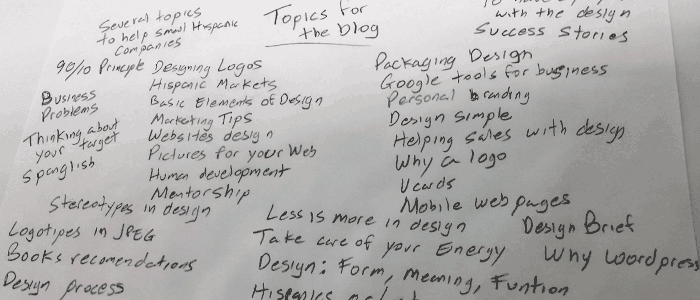 Several topics
to help small Hispanic
Companies
Topics for
the blog
with the design
Success Stories
90/10 Principle
Designing Logos
Hispanic Markets
Business
Problems
Basic Elements of Design
Marketing Tips
Thinking about
your target
Websites design
Spanglish
Pictures for your Web
Human development
Mentorship
Stereotypes in design
Packaging Design
Google tools for business
Personal branding
Design simple
Helping Sales with design
Why a logo
Vcards
Mobile web pages
Logotipes in JPEG
Books recomendations
Design process
Less is more in design
Take care of your Energy
Design: Form, meaning, Funtion
Hispanics
Design Brief
Why wordpress